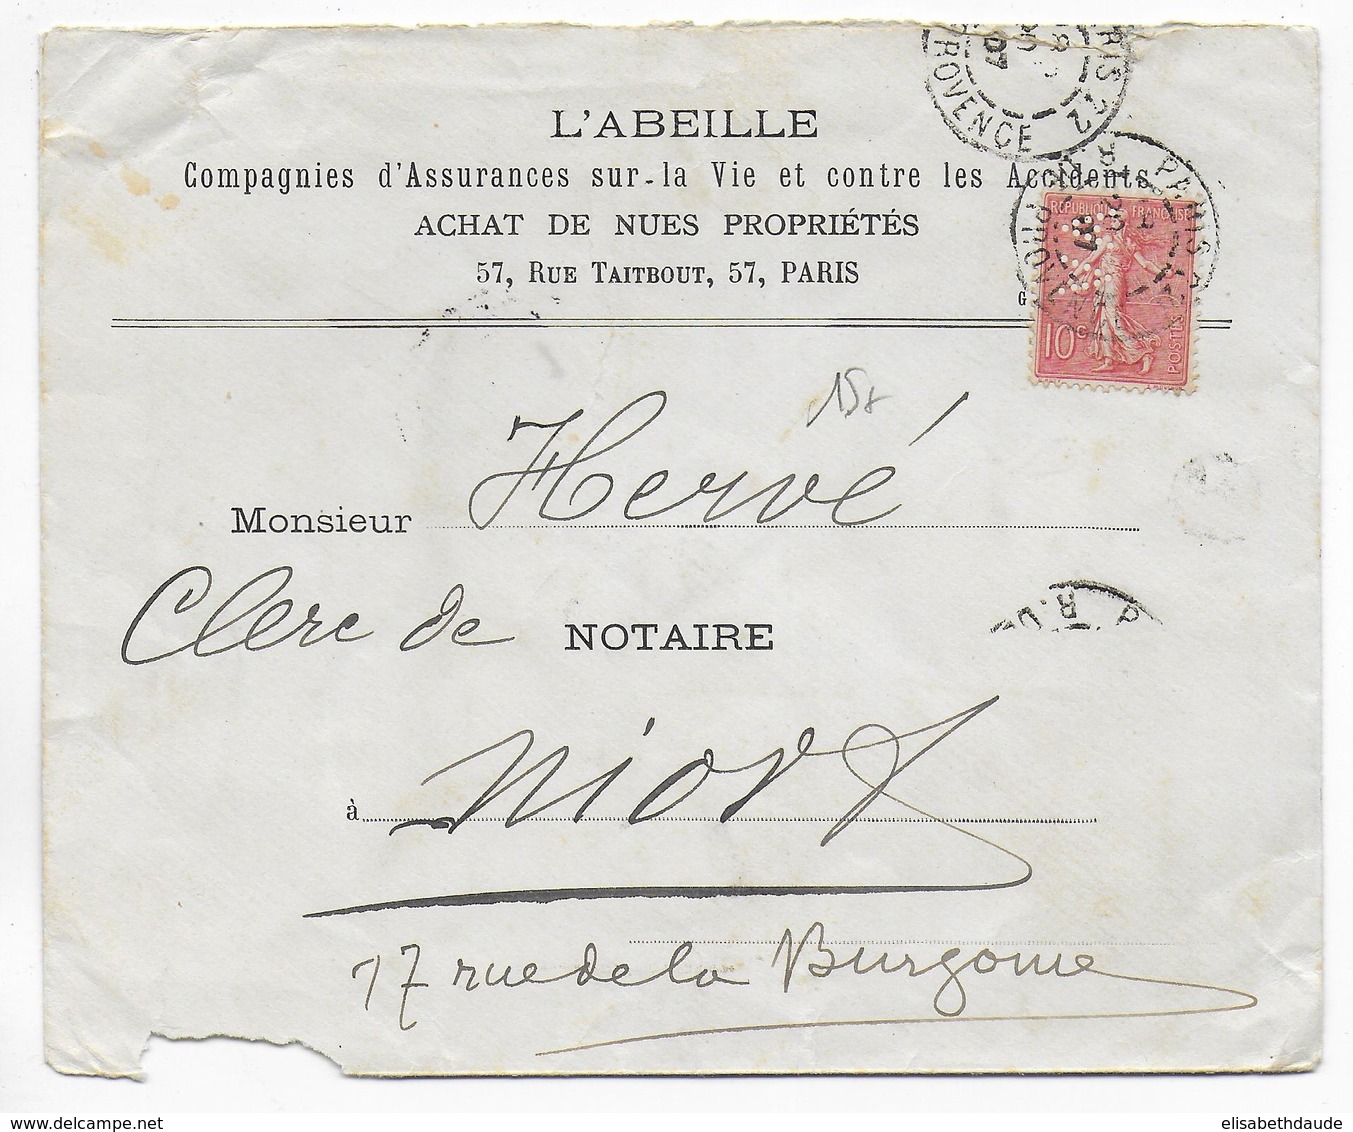 RIS 22
07
ROVENCE
L'ABEILLE
Compagnies d'Assurances sur la Vie et contre les Accidents
ACHAT DE NUES PROPRIÉTÉS
57, RUE TAITBOUT, 57, PARIS
G
PARIS
RÉPUBLIQUE FRANÇAISE
10c
POSTES
15€
Monsieur Hervé
Clerc de NOTAIRE
à Niort
17 rue de la Burgonie
delcampe.net
elisabethdaude